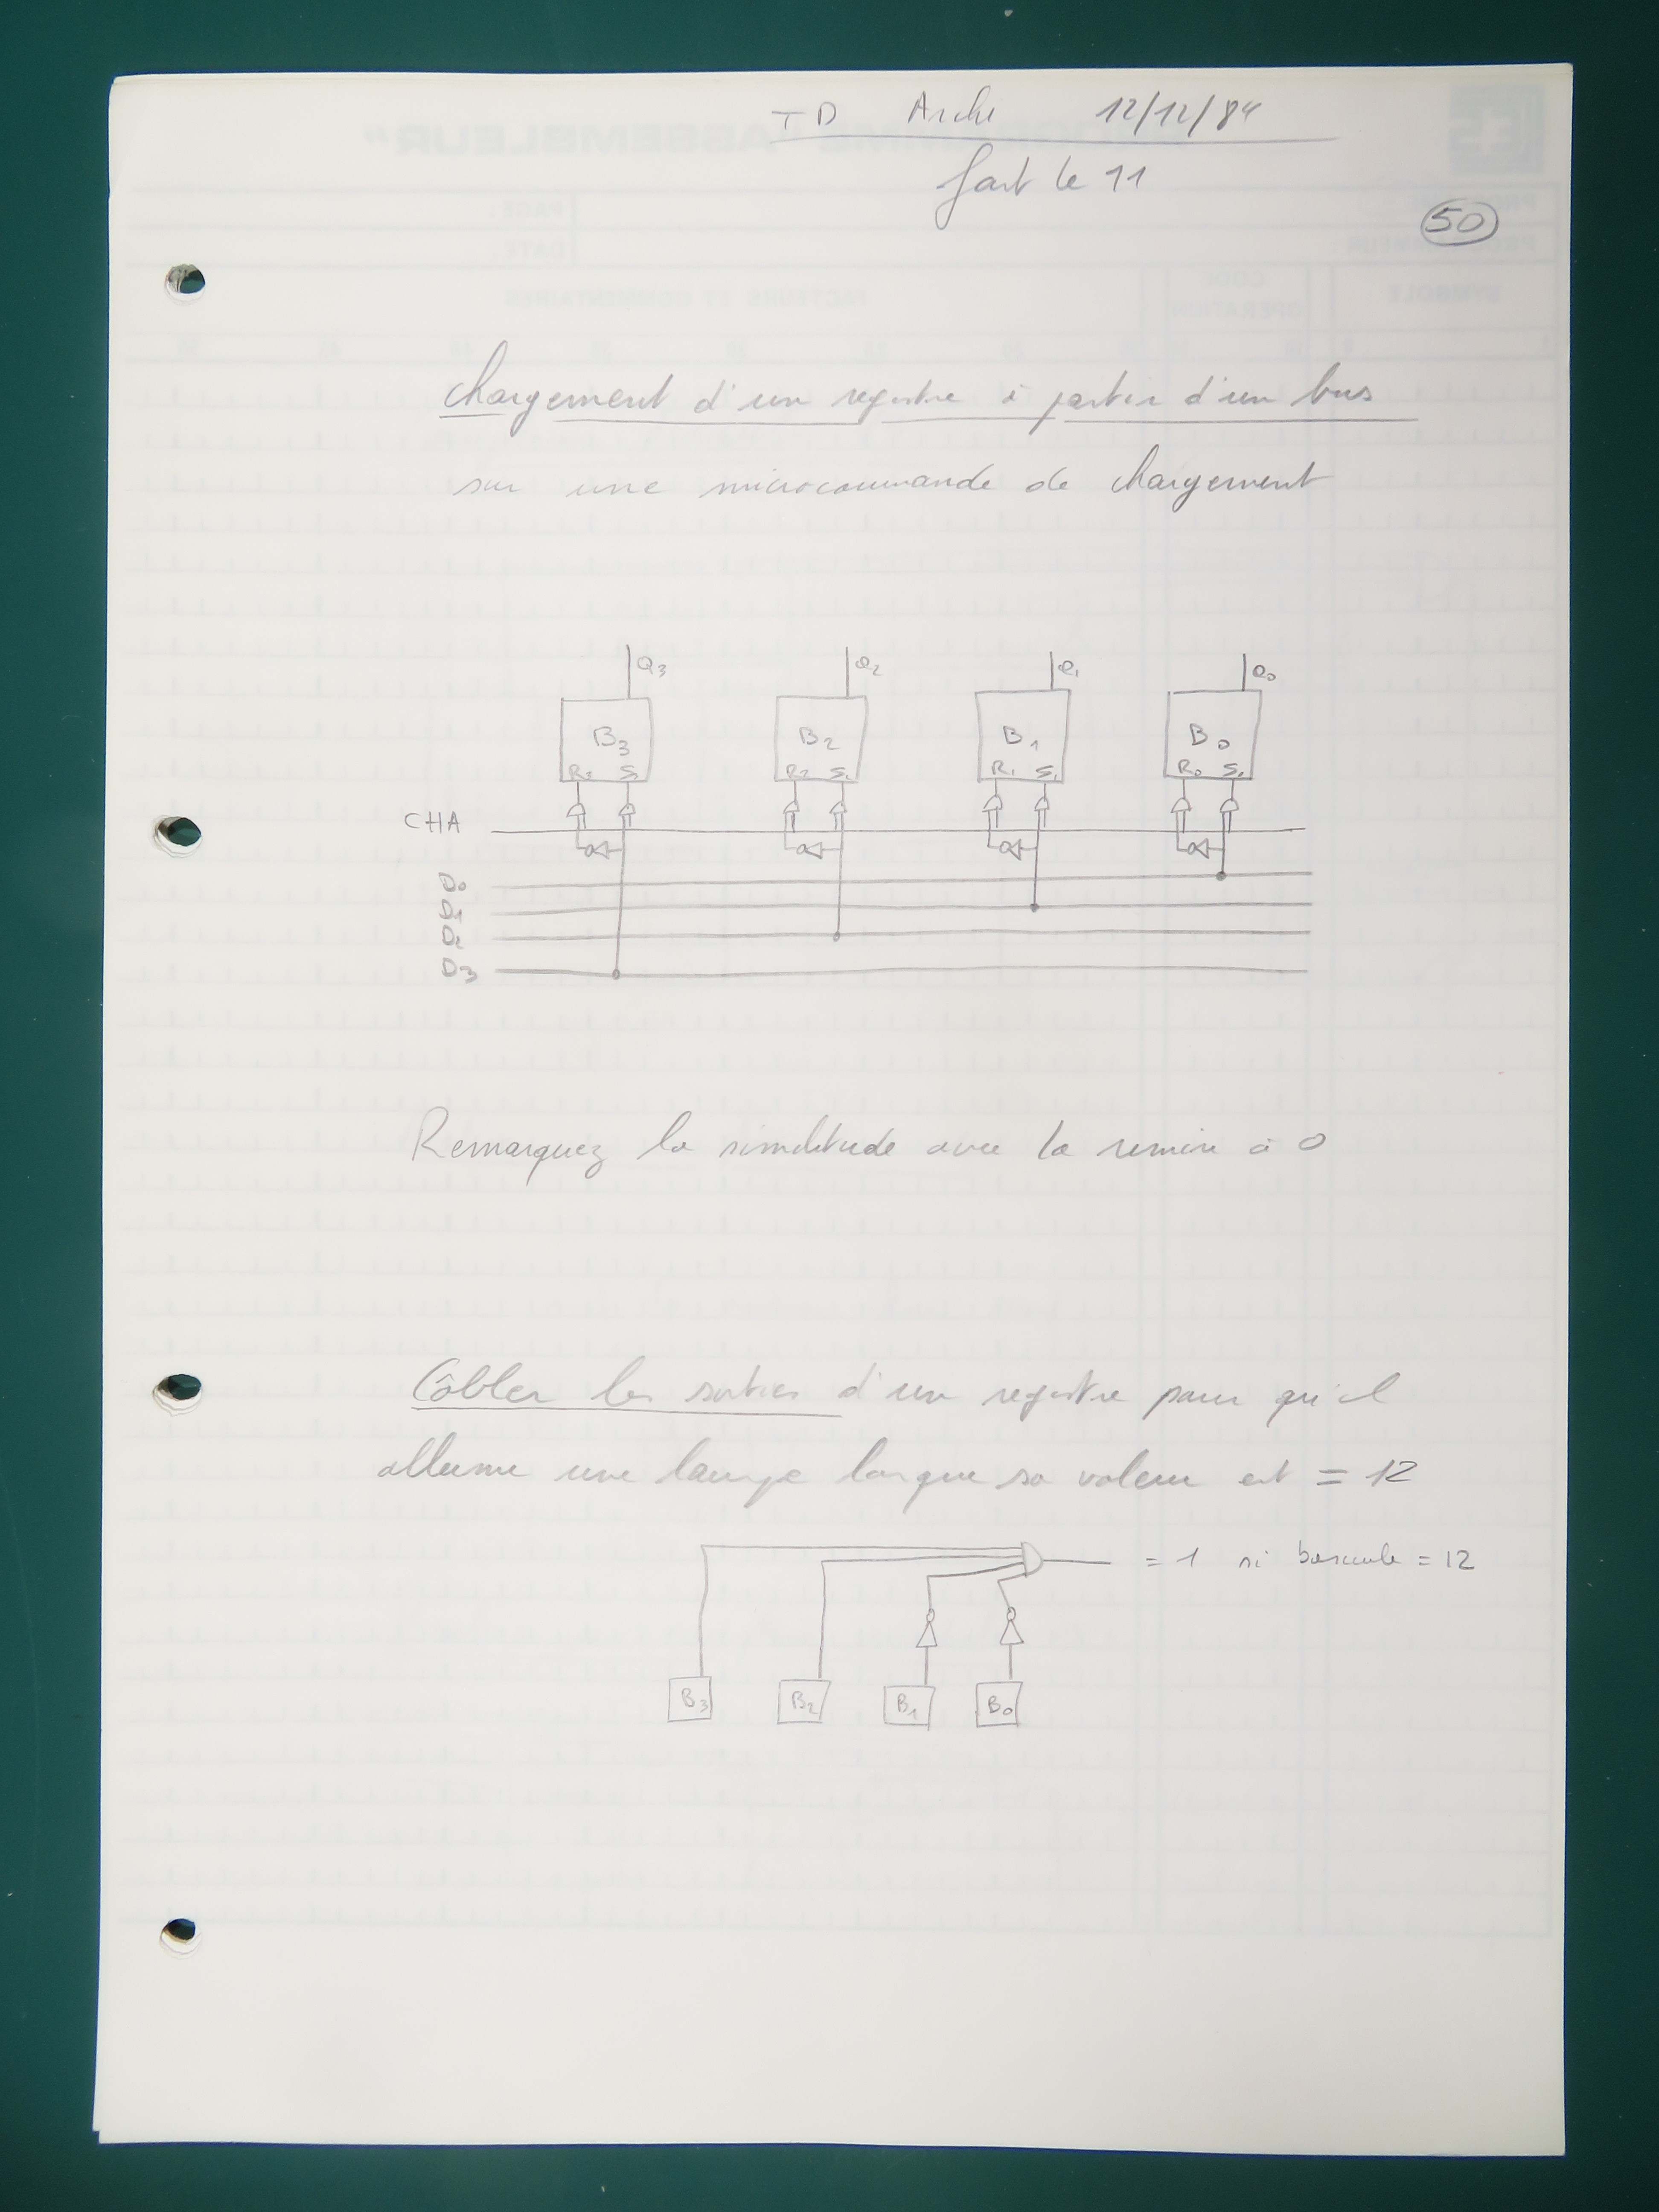 TD Archi 12/12/84
fait le 11
50
Chargement d'un registre à partir d'un bus
sur une microcommande de chargement
Q3 Q2 Q1 Q0
B3 B2 B1 B0
R2 S R1 S R0 S
CHA
D0
D1
D2
D3
Remarquez la similitude avec la remise à 0
Câbler les sorties d'un registre pour qu'il
allume une lampe lorsque sa valeur est = 12
= 1 si bascule = 12
B3 B2 B1 B0